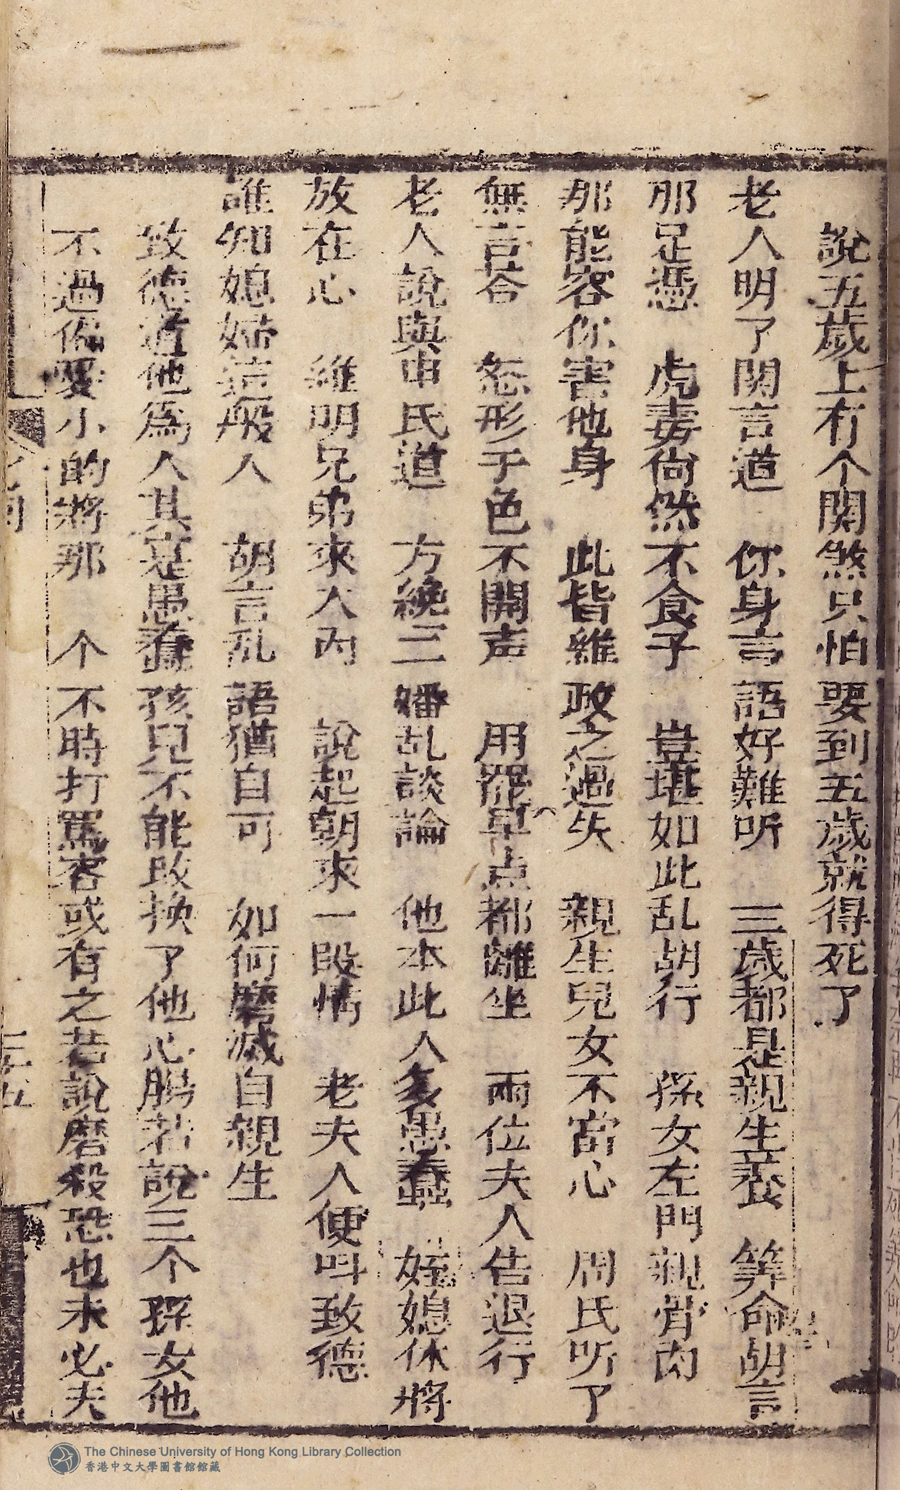 說五歲上有个関煞只怕要到五歲就得死了
老人明了関言道 你身言語好難听 三歲都是親生養 筭命胡言
那足憑 虎毒尙然不食子 豈堪如此乱胡行 孫女左門親骨肉
那能容你害他身 此皆維政之過失 親生兒女不當心 周氏听了
無言荅 怒形于色不開声 用罷早点都離坐 兩位夫人告退行
老人說與申氏道 方纔三嬸乱談論 他本此人多愚蠢 姪媳休將
放在心 維明兄弟來入內 說起朝來一段情 老夫人便呌致德
誰知媳婦這般人 胡言乱語猶自可 如何磨滅自親生
致德道他爲人其寔愚蠢孩兒不能改換了他心腸若說三个孫女他
不過偏愛小的將那 个不時打罵容或有之若說磨殺恐也未必夫
三十五
The Chinese University of Hong Kong Library Collection
香港中文大學圖書館館藏